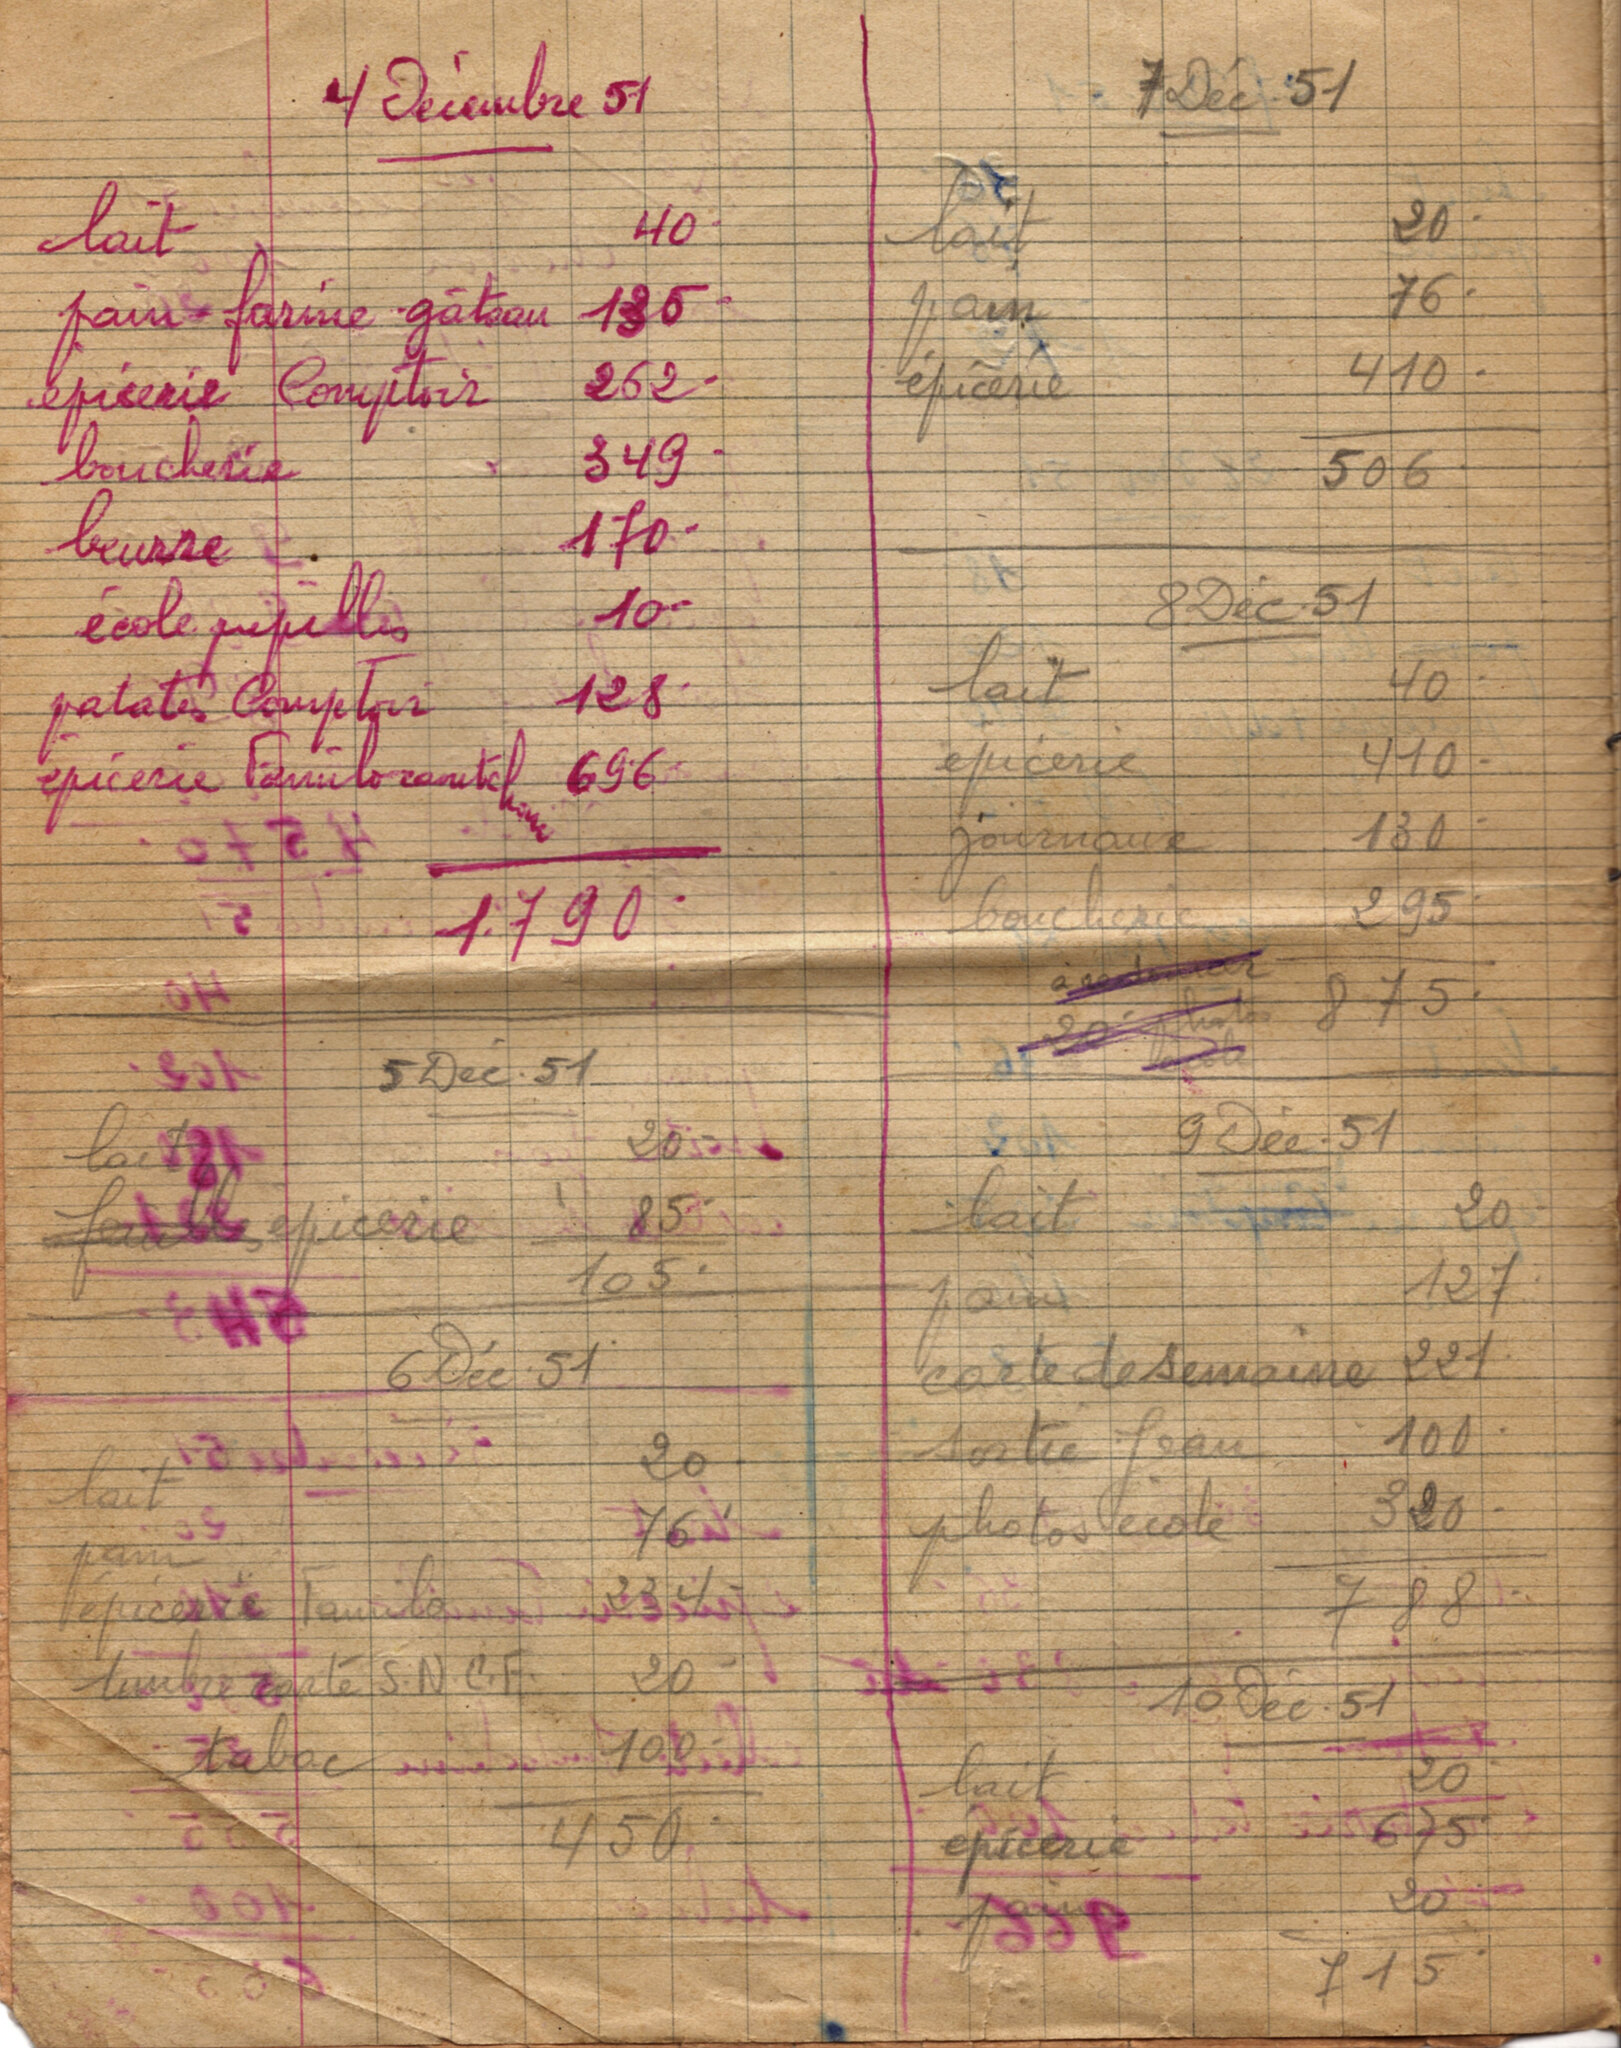 4 Décembre 51
lait 40
pain farine gâteau 135
épicerie Comptoir 262
boucherie 349
beurre 170
école pupilles 10
patates Comptoir 128
épicerie Familo 696
1.790
5 Déc. 51
lait 20
épicerie 85
105
6 Déc. 51
lait 20
pain 76
épicerie Familo 234
timbre carte S.N.C.F. 20
tabac 100
450
7 Déc. 51
lait 20
pain 76
épicerie 410
506
8 Déc. 51
lait 40
épicerie 410
journaux 130
boucherie 295
875
20 photos
école
9 Déc. 51
lait 20
pain 127
carte de semaine 221
sortie Jean 100
photos école 320
788
10 Déc. 51
lait 20
épicerie 675
pain 20
715